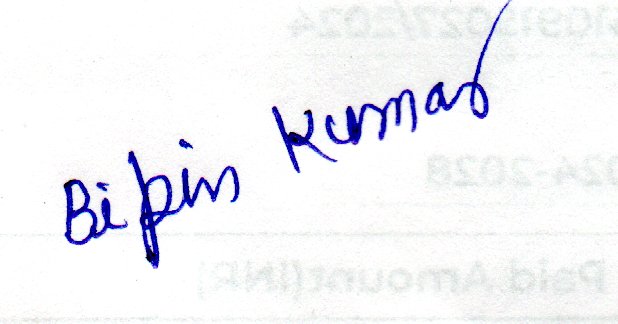 Bipin Kumar